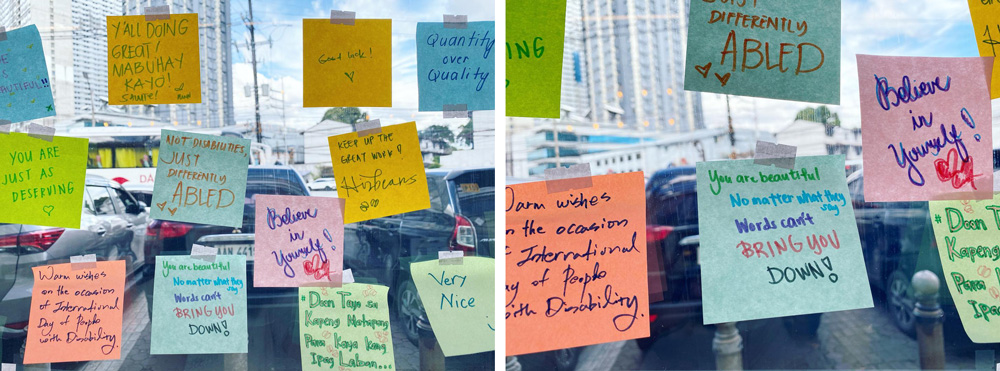 Y'ALL DOING
GREAT!
MABUHAY
KAYO!
Good luck!
Quantity
over
Quality
YOU ARE
JUST AS
DESERVING
NOT DISABILITIES,
JUST
DIFFERENTLY
ABLED
KEEP UP THE
GREAT WORK!
Believe
in
Yourself!
Warm wishes
on the occasion
of International
Day of People
with Disability.
You are beautiful
No matter what they
say
Words can't
BRING YOU
DOWN!
# Doon Tayo sa
Kapeng Matapang
Para Kaya kang
Ipag Laban...
Very
Nice
DIFFERENTLY
ABLED
Believe
in
Yourself!
Warm wishes
on the occasion
of International
Day of People
with Disability.
You are beautiful
No matter what they
say
Words can't
BRING YOU
DOWN!
# Doon
Kapeng
Para
Ipag